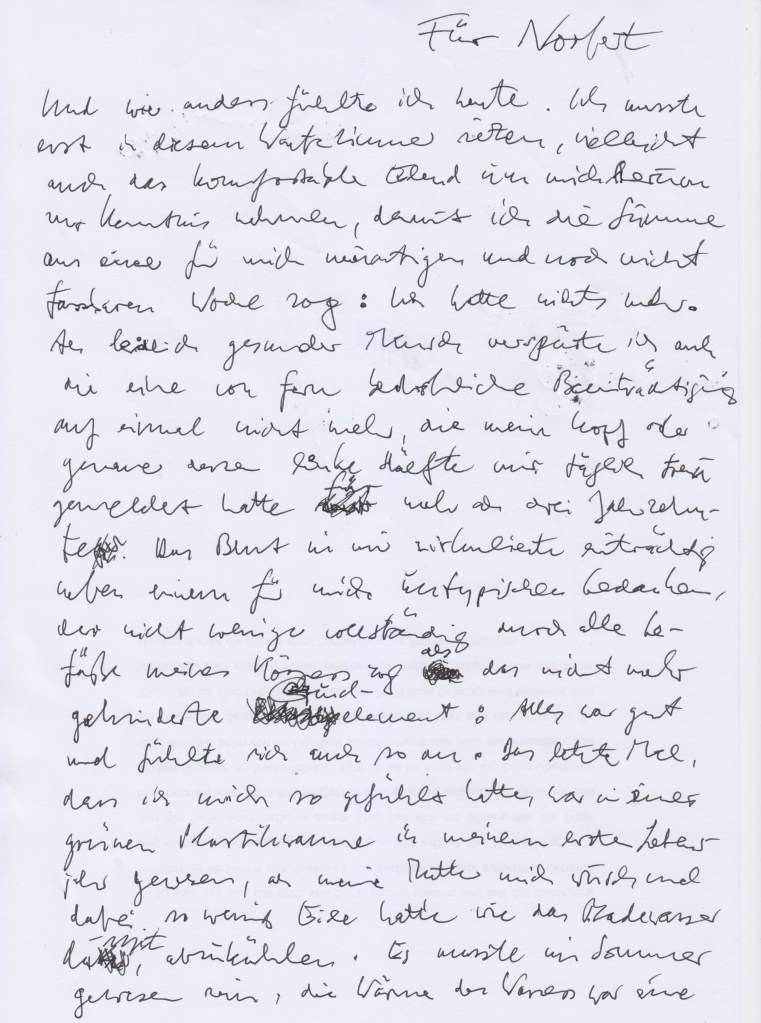 Für Norbert
Und wie anders fühlte ich heute. Ich musste
erst in diesem Wartezimmer sitzen, vielleicht
auch das komfortable Elend um mich herum
zur Kenntnis nehmen, damit ich die Summe
aus einer für mich neuartigen und noch nicht
fassbaren Woche zog: Ich hatte nichts mehr.
Als gesunder Mensch verspürte ich auch
die eine von fern bedrohliche Beeinträchtigung
auf einmal nicht mehr, die mein Kopf oder
genauer deren linke Hälfte mir täglich treu
gemeldet hatte für mehr als drei Jahrzehn-
te. Das Blut in mir zirkulierte einträchtig
neben einem für mich untypischen Gedanken,
der nicht weniger vollständig durch alle Ge-
fäße meines Körpers zog als das nicht mehr
gehinderte Grund-
element: Alles war gut
und fühlte sich auch so an. Das letzte Mal,
dass ich mich so gefühlt hatte, war in einer
grünen Plastikwanne in meinem ersten Lebens-
jahr gewesen, als meine Mutter mich wusch und
dabei so wenig Eile hatte wie das Badewasser
damit, abzukühlen. Es musste im Sommer
gewesen sein, die Wärme des Wassers war eine